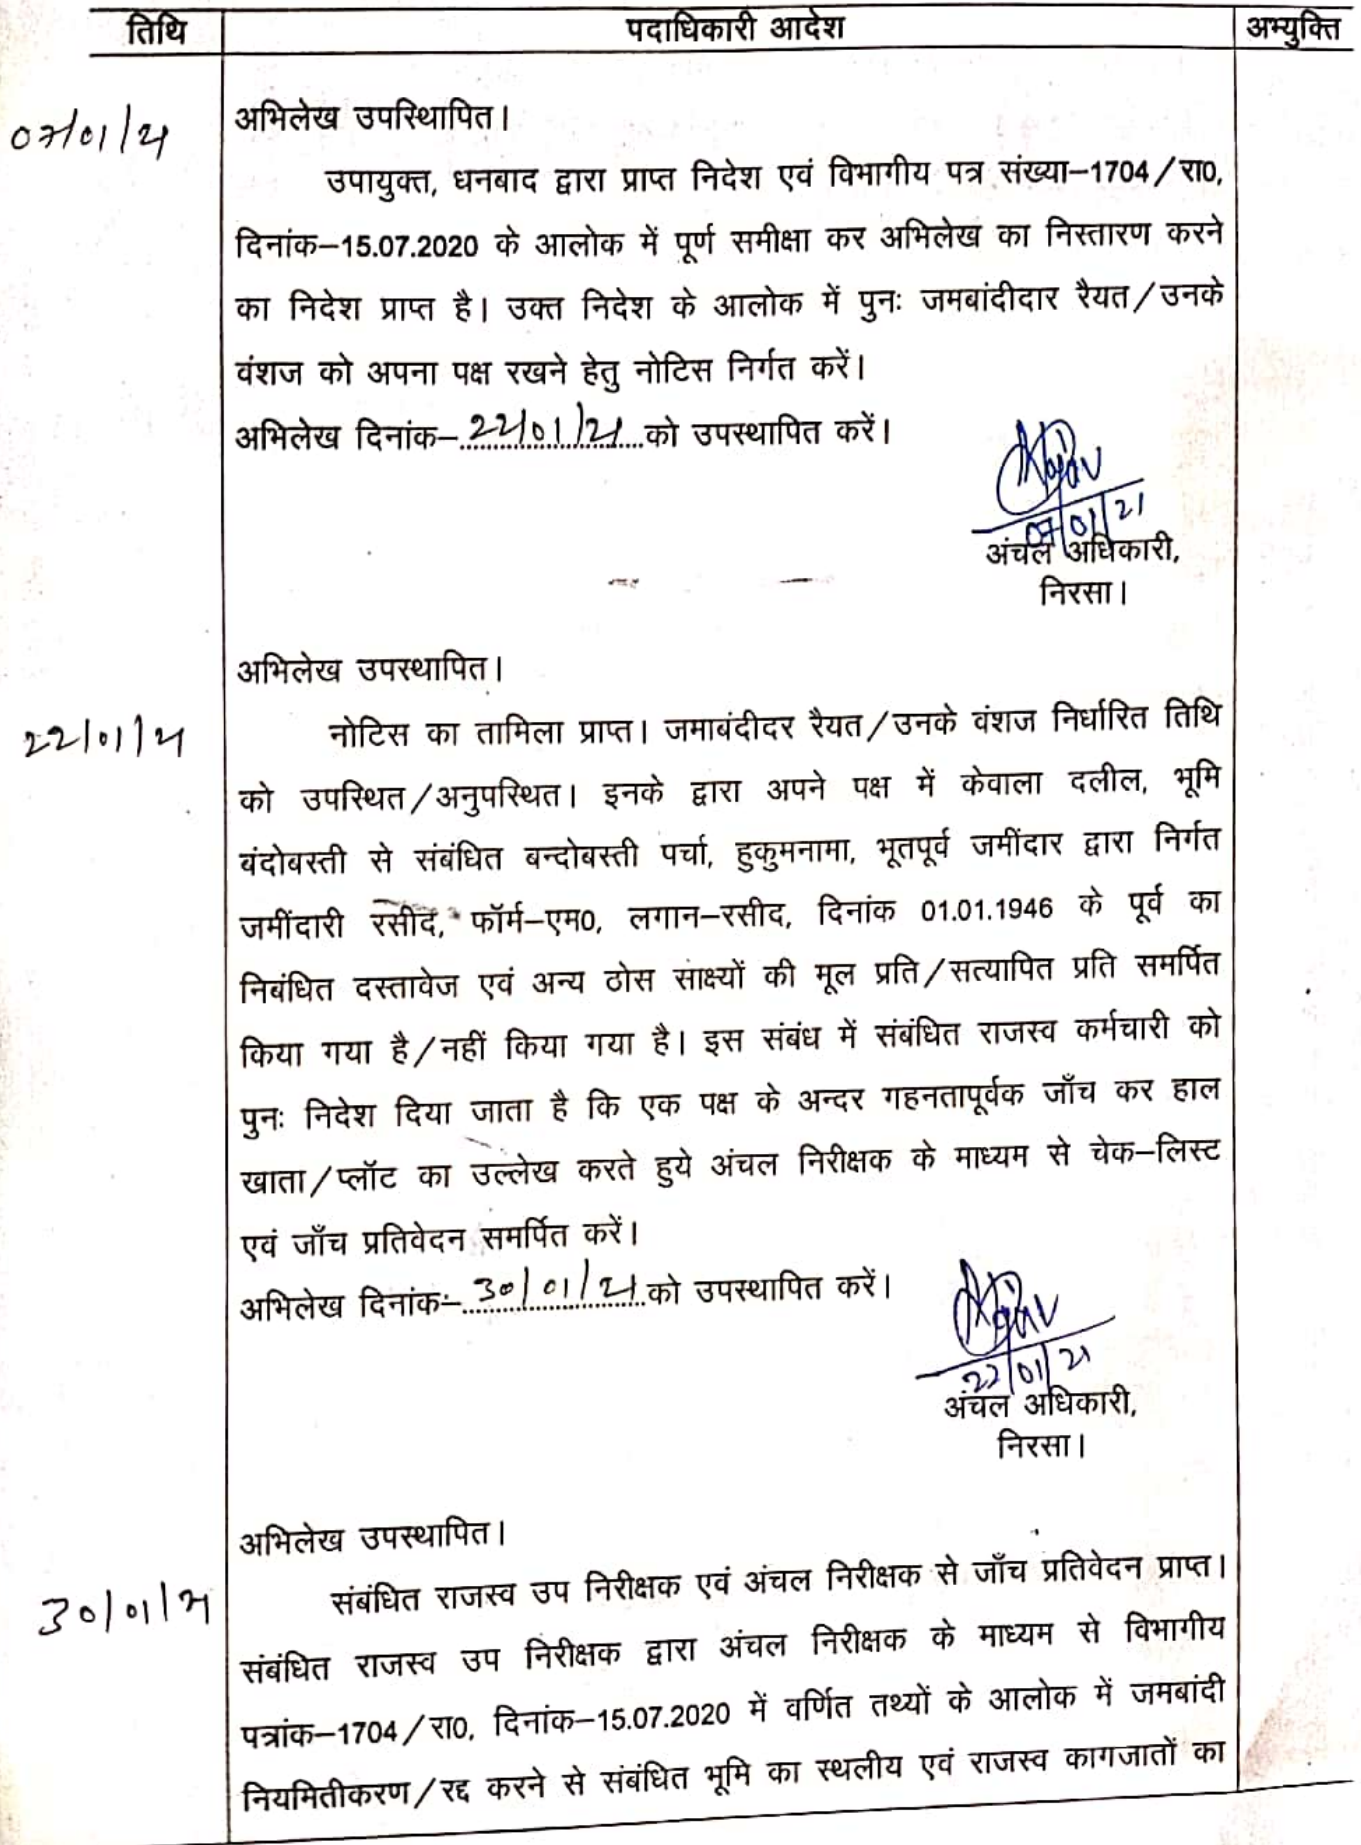 तिथि पदाधिकारी आदेश अभ्युक्ति
07/01/21
अभिलेख उपस्थापित।
उपायुक्त, धनबाद द्वारा प्राप्त निदेश एवं विभागीय पत्र संख्या–1704/रा0,
दिनांक–15.07.2020 के आलोक में पूर्ण समीक्षा कर अभिलेख का निस्तारण करने
का निदेश प्राप्त है। उक्त निदेश के आलोक में पुनः जमबांदीदार रैयत/उनके
वंशज को अपना पक्ष रखने हेतु नोटिस निर्गत करें।
अभिलेख दिनांक–22/01/21 को उपस्थापित करें।
07/01/21
अंचल अधिकारी,
निरसा।
अभिलेख उपस्थापित।
22/01/21
नोटिस का तामिला प्राप्त। जमाबंदीदर रैयत/उनके वंशज निर्धारित तिथि
को उपस्थित/अनुपस्थित। इनके द्वारा अपने पक्ष में केवाला दलील, भूमि
बंदोबस्ती से संबंधित बन्दोबस्ती पर्चा, हुकुमनामा, भूतपूर्व जमींदार द्वारा निर्गत
जमींदारी रसीद, फॉर्म–एम0, लगान–रसीद, दिनांक 01.01.1946 के पूर्व का
निबंधित दस्तावेज एवं अन्य ठोस साक्ष्यों की मूल प्रति/सत्यापित प्रति समर्पित
किया गया है/नहीं किया गया है। इस संबंध में संबंधित राजस्व कर्मचारी को
पुनः निदेश दिया जाता है कि एक पक्ष के अन्दर गहनतापूर्वक जाँच कर हाल
खाता/प्लॉट का उल्लेख करते हुये अंचल निरीक्षक के माध्यम से चेक–लिस्ट
एवं जाँच प्रतिवेदन समर्पित करें।
अभिलेख दिनांक:–30/01/21 को उपस्थापित करें।
22/01/21
अंचल अधिकारी,
निरसा।
अभिलेख उपस्थापित।
30/01/21
संबंधित राजस्व उप निरीक्षक एवं अंचल निरीक्षक से जाँच प्रतिवेदन प्राप्त।
संबंधित राजस्व उप निरीक्षक द्वारा अंचल निरीक्षक के माध्यम से विभागीय
पत्रांक–1704/रा0, दिनांक–15.07.2020 में वर्णित तथ्यों के आलोक में जमबांदी
नियमितीकरण/रद्द करने से संबंधित भूमि का स्थलीय एवं राजस्व कागजातों का